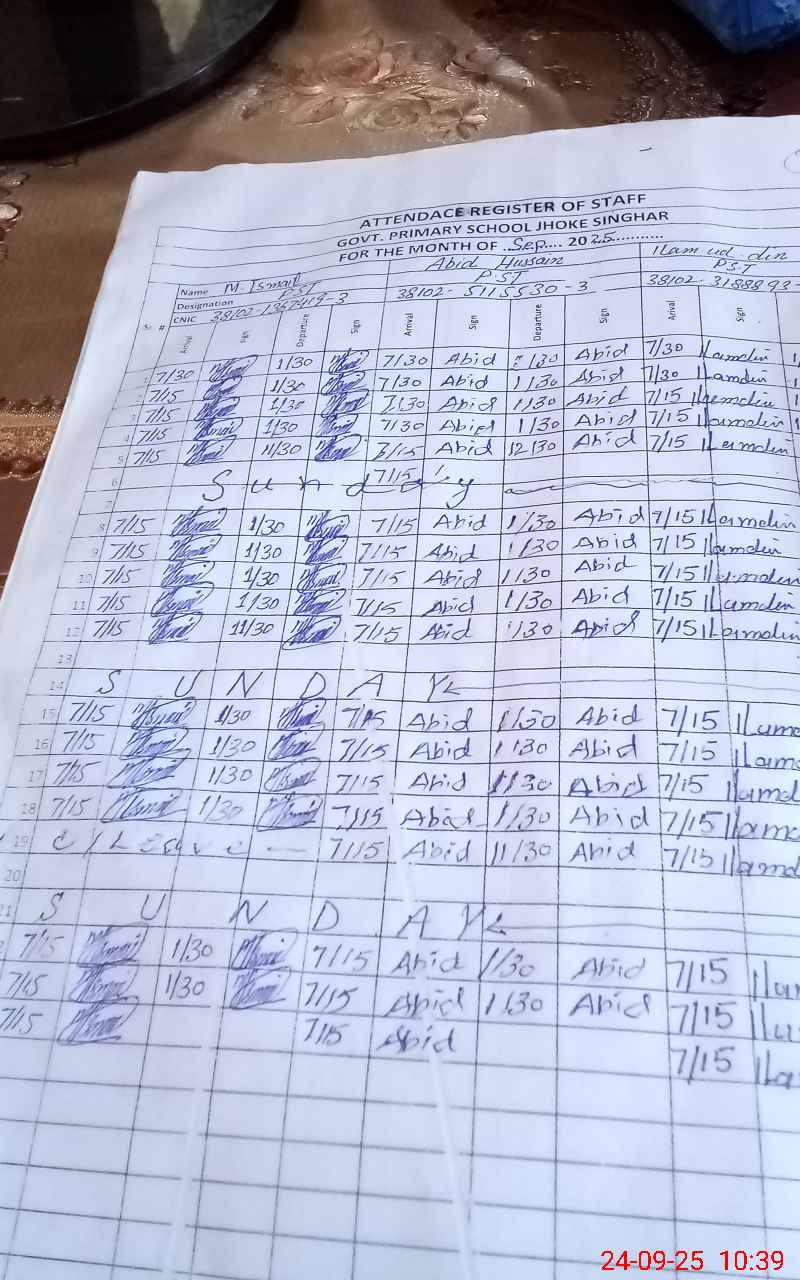 ATTENDACE REGISTER OF STAFF
GOVT. PRIMARY SCHOOL JHOKE SINGHAR
FOR THE MONTH OF ..Sep.... 2025...........
Name M. Ismail Abid Hussain Ilam ud din
Designation PST P.ST P.S.T
CNIC 38102-1367419-3 38102-5115530-3 38102-3188893-
Sr. # Arrival Sign Departure Sign Arrival Sign Departure Sign Arrival Sign
1 7/30 1/30 7/30 Abid 1/30 Abid 7/30 Ilamdin
2 7/15 1/30 7/30 Abid 1/30 Abid 7/30 Ilamdin
3 7/15 1/30 7/30 Abid 1/30 Abid 7/15 Ilamdin
4 7/15 1/30 7/30 Abid 1/30 Abid 7/15 Ilamdin
5 7/15 11/30 7/15 Abid 12/30 Abid 7/15 Ilamdin
6 7/15
7 Sunday
8 7/15 1/30 7/15 Abid 1/30 Abid 7/15 Ilamdin
9 7/15 1/30 7/15 Abid 1/30 Abid 7/15 Ilamdin
10 7/15 1/30 7/15 Abid 1/30 Abid 7/15 Ilamdin
11 7/15 1/30 7/15 Abid 1/30 Abid 7/15 Ilamdin
12 7/15 11/30 7/15 Abid 1/30 Abid 7/15 Ilamdin
13
14 SUNDAY
15 7/15 1/30 7/15 Abid 1/30 Abid 7/15 Ilam
16 7/15 1/30 7/15 Abid 1/30 Abid 7/15 Ilam
17 7/15 1/30 7/15 Abid 1/30 Abid 7/15 Ilamd
18 7/15 1/30 7/15 Abid 1/30 Abid 7/15 Ilamd
19 C/Leave 7/15 Abid 11/30 Abid 7/15 Ilamd
20
21 SUNDAY
7/15 1/30 7/15 Abid 1/30 Abid 7/15 Ilam
7/15 1/30 7/15 Abid 1/30 Abid 7/15 Ila
7/15 7/15 Abid 7/15 Ila
24-09-25 10:39